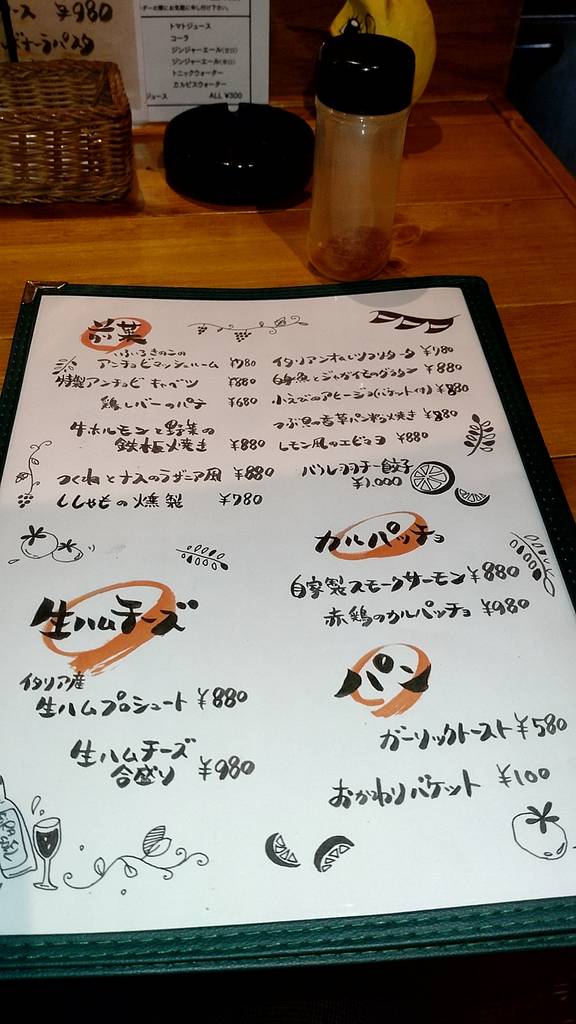 ース ¥980
ボナーラパスタ
ダーの際にお気軽に申し付け下さい。
トマトジュース
コーラ
ジンジャーエール(甘口)
ジンジャーエール(辛口)
トニックウォーター
カルピスウォーター
ジュース ALL ¥300
前菜
いろいろきのこの
アンチョビマッシュルーム ¥980
特製アンチョビキャベツ ¥880
鶏レバーのパテ ¥680
牛ホルモンと野菜の
鉄板焼き ¥880
つくねとナスのラザニア風 ¥880
ししゃもの燻製 ¥780
イタリアンオムレツ ¥980
白身魚とジャガイモのグラタン ¥880
小えびのアヒージョ(バケット付) ¥880
つぶ貝の香草パン粉焼き ¥880
レモン風のエビマヨ ¥880
餃子
¥1,000
カルパッチョ
自家製スモークサーモン ¥880
赤鶏のカルパッチョ ¥980
生ハムチーズ
イタリア産
生ハムプロシュート ¥880
生ハムチーズ
合盛り ¥980
パン
ガーリックトースト ¥580
おかわりバケット ¥100